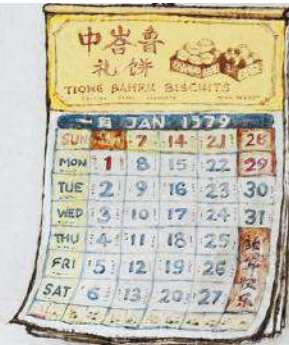 中峇鲁
礼饼
TIONG BAHRU BISCUITS
一月 JAN 1979
SUN 7 14 21 28
MON 1 8 15 22 29
TUE 2 9 16 23 30
WED 3 10 17 24 31
THU 4 11 18 25
FRI 5 12 19 26
SAT 6 13 20 27